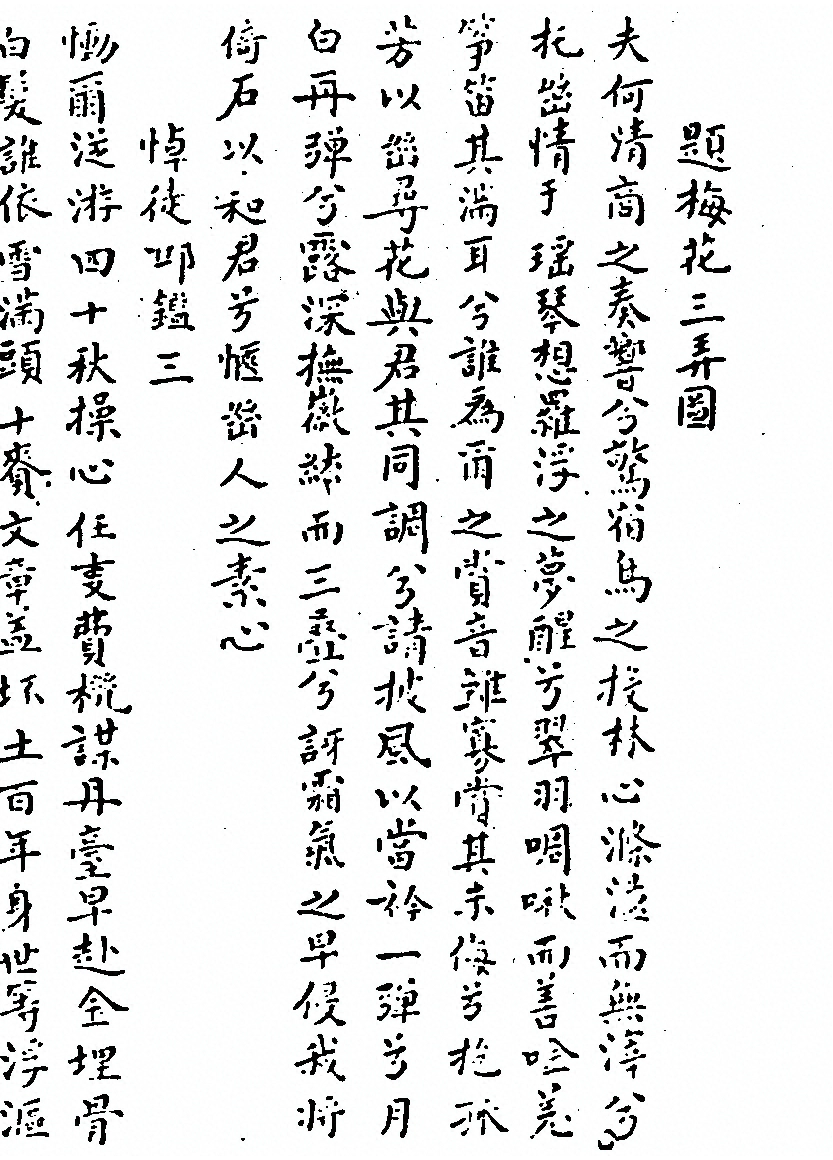 題梅花三弄圖
夫何清商之奏響兮驚宿鳥之投林心滌濾而無滓兮
托幽情于瑤琴想羅浮之夢醒兮翠羽啁啾而善吟羌
箏笛其滿耳兮誰為爾之賞音雖寡嘗其未侮兮抱孤
芳以幽尋花與君其同調兮請披風以當衿一彈兮月
白再彈兮露深撫徽絃而三疊兮訝霜氣之早侵我將
倚石以和君兮愜幽人之素心
悼徒邱鑑三
慟爾從游四十秋操心任支費機謀丹臺早赴金埋骨
白髮誰依雪滿頭十賚文章蓋坏土百年身世等浮漚